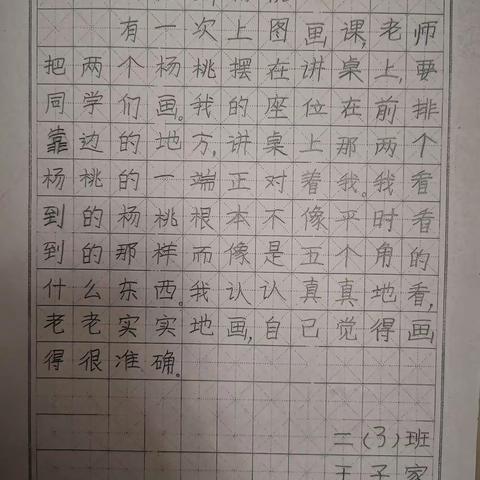 有一次上图画课,老师
把两个杨桃摆在讲桌上,要
同学们画。我的座位在前排
靠边的地方,讲桌上那两个
杨桃的一端正对着我。我看
到的杨桃根本不像平时看
到的那样而像是五个角的
什么东西。我认认真真地看,
老老实实地画,自己觉得画
得很准确。
二(3)班
王子家